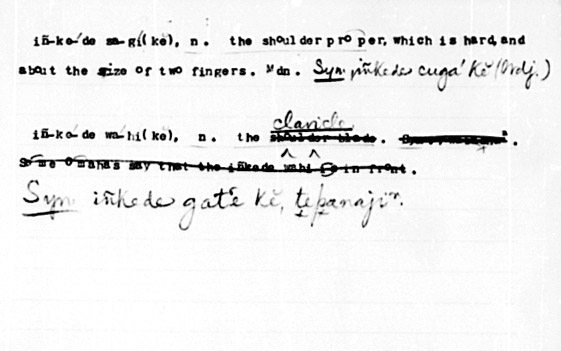 iñ-ke-́de sa-gí(kĕ), n. the shoulder proper, which is hard, and
about the size of two fingers. Mdn. Syn. iñkede cugá kĕ (Ordj.)
clavicle
iñ-ke-́de wa-́hi(kĕ), n. the shoulder blade.
Some Omahas say that the iñkede wahi is in front.
Syn. iñkede gaté kĕ, ṭep̣anajiⁿ.